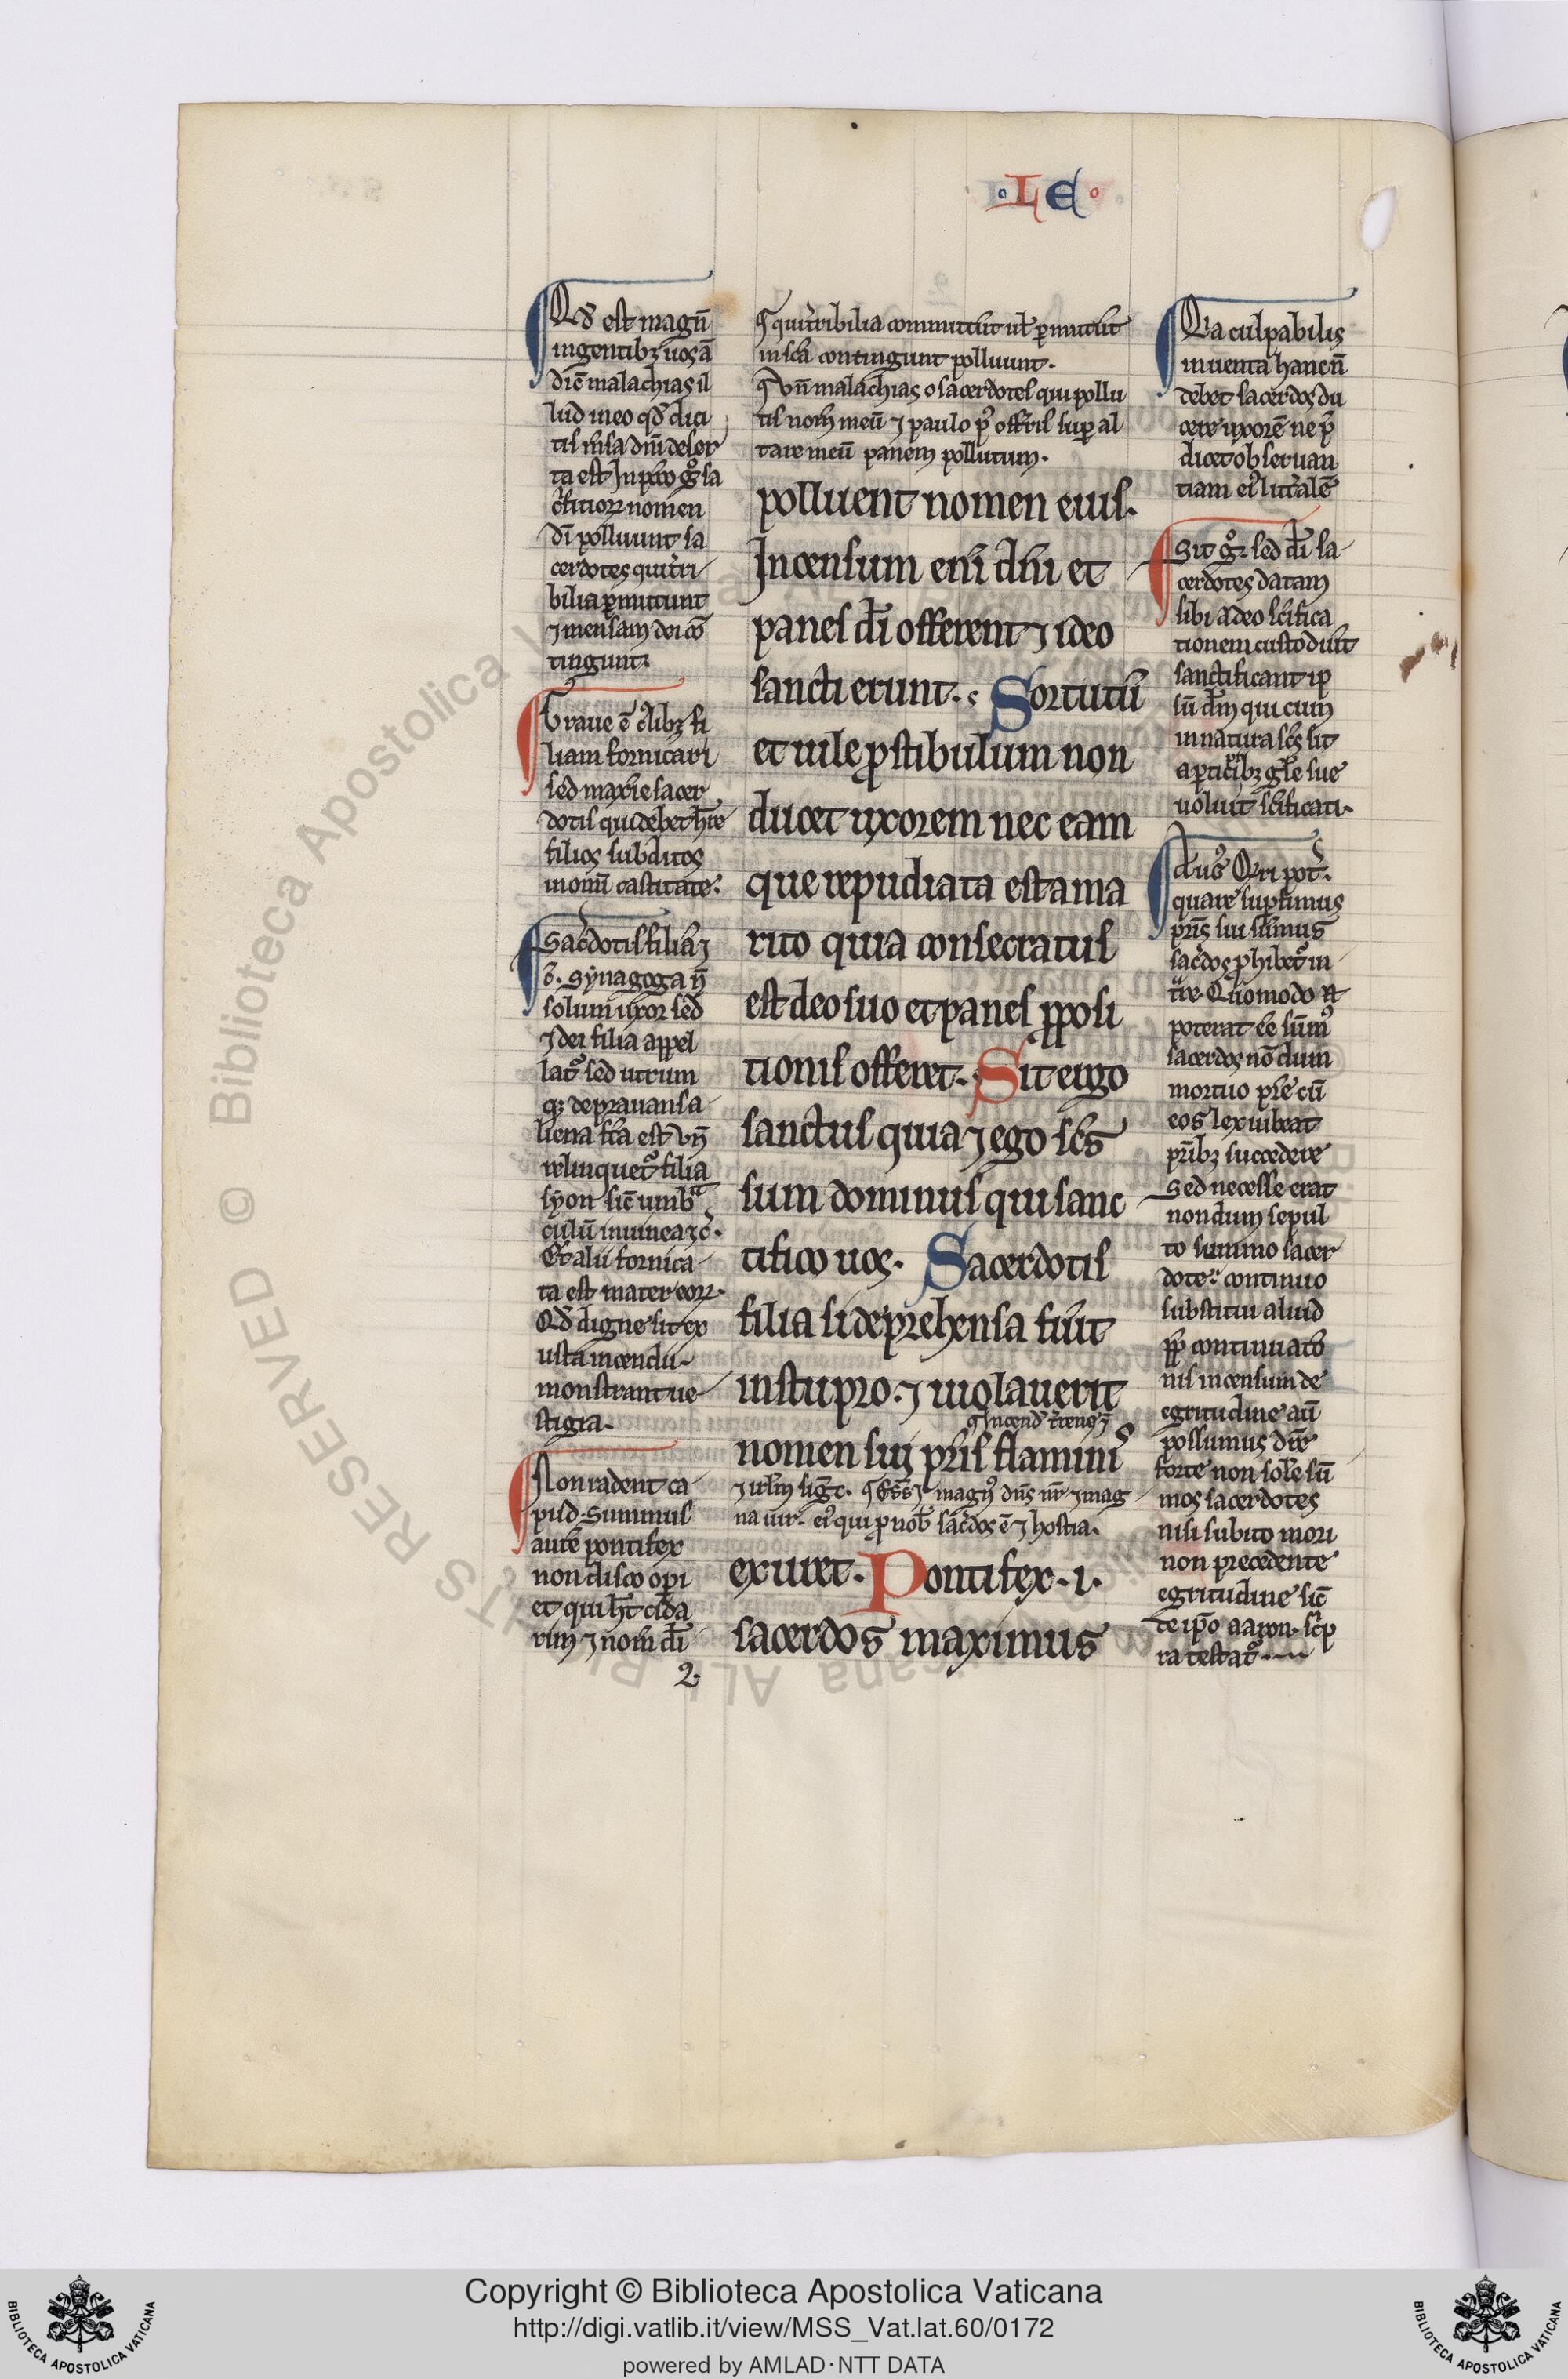 ·L E·
Qd̄ est magnū
ingentibꝫ uos aū
dic̄ malachias il
lud in eo qd̄ dici
tis m̄sa dn̄i deser
ta est In pͥmo gͦ sa
cͥficiorꝝ nomen
dī polluunt sa
cerdotes qui tͥri
bilia ꝑmittunt
⁊ mensam dei cō
tingunt.
Graue ē oͥbꝫ fi
liam fornicari
sed maxīe sacer
dotis qui debet hr̄e
filios subditos
in om̄i castitate.
Sacͥdotis filia ⁊
c̄. Synagoga n̄
solum uxor sed
⁊ dei filia appel
latͬ sed utrum
qꝫ deprauans a
liena fc̄a est vn̄
relinquetͬ filia
syon sic̄ umbͣ
culū in uinea ⁊c̄.
Et alii fornica
ta est mater eorꝝ.
Qd̄ digne sit ex
usta incendii
monstrant ue
stigia.
Non radent ca
pud. Summus
autē pontifex
non discoopͥi
et qui hꝫ cida
rim ⁊ nom̄ dī
2.
¶ qui tͥribilia committūt ul̓ ꝑmittūt
in sc̄a contingunt polluunt.
¶ Vn̄ malachias o sacerdotes qui pollu
tis nom̄ meū ⁊ paulo pͦ offertis suꝑ al
tare meū panem pollutum.
polluent nomen eius.
Incensum eni᷑ dn̄i et
panes dī offerent ⁊ ideo
sancti erunt. Scortum
et uile ꝓstibulum non
ducet uxorem nec eam
que repudiata est a ma
rito quia consecratus
est deo suo et panes ꝓposi
tionis offeret. Sit ergo
sanctus quia ⁊ ego sc̄s
sum dominus qui sanc
tifico uos. Sacerdotis
filia si deprehensa fuīt
in stupro. ⁊ uiolauerit
nomen sui pr̄is flammiˢ
exuret. Pontifex .i.
sacerdos maximus
Qͣ culpabilis
inuenta hanc n̄
debet sacerdos du
cere uxorē ne p̄
dicet obseruan
tiam ei᷒ litͣalē
Sit gͦ ⁊c̄ sed dī sa
cerdotes datam
sibi a deo sc̄ifica
tionem custodiūt
sanctificant ip
sū dm̄ qui cum
in natura sc̄s sit
a ꝑticibꝫ gl̄e sue
uoluit sc̄ificari.
Qͥri pot̄
quare suꝑ om̄s
pr̄is sui summus
sacͥdos ꝓhibetͬ in
tͣre. Quomodo n̄
poterat ēe sūm᷒
sacerdos nōdum
mortuo pr̄e cū
eos lex iubeat
pr̄ibꝫ succedere
Sed necesse erat
nondum sepul
to summo sacer
dote continuo
substitui aliud
ꝓp̄ continuatō
nis incensum de
egritudine aū
possumus dic̄e
forte non solē sū
mos sacerdotes
nisi subito mori
non precedente
egritudine sic̄
de ip̄o aaron scͥp
ra testatͬ
Copyright © Biblioteca Apostolica Vaticana
http://digi.vatlib.it/view/MSS_Vat.lat.60/0172
powered by AMLAD·NTT DATA
BIBLIOTECA APOSTOLICA VATICANA
BIBLIOTECA APOSTOLICA VATICANA
© Biblioteca Apostolica Vaticana ALL RIGHTS RESERVED